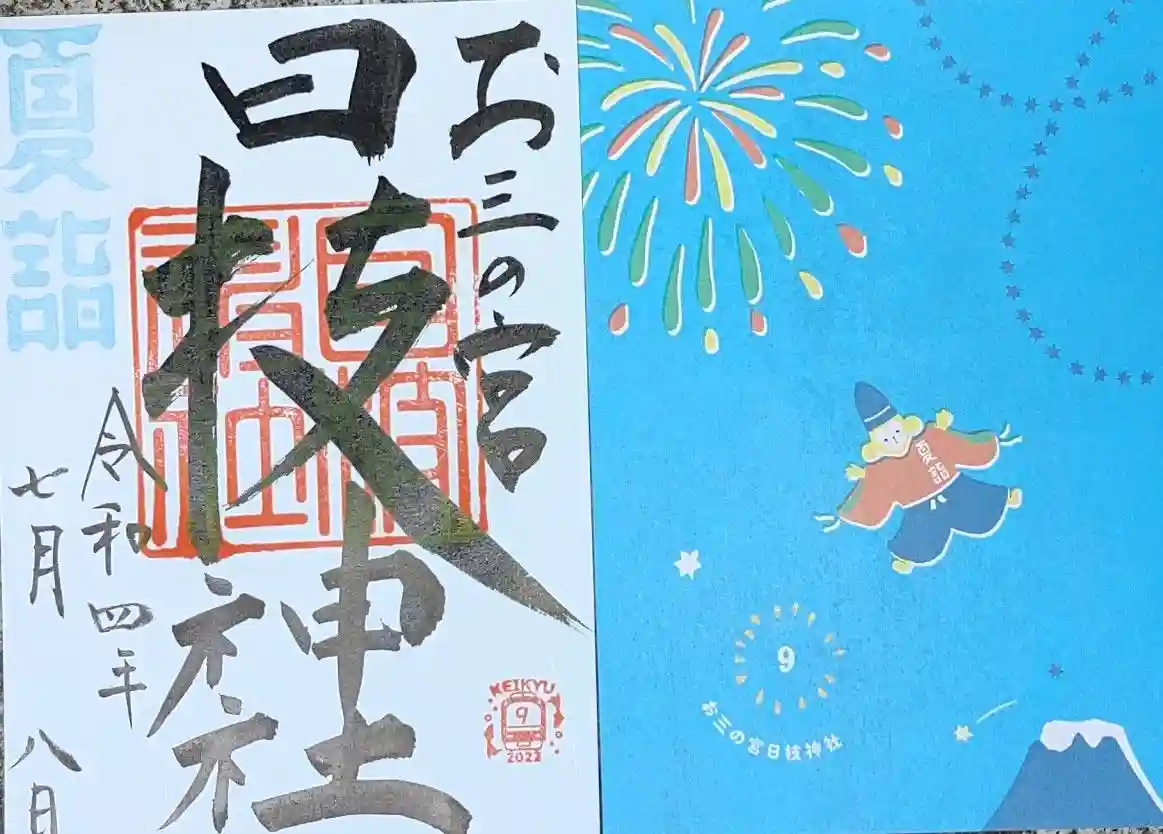 お三の宮
日枝神社
夏詣
令和四年
七月八日
KEIKYU
9
2022
夏詣
9
お三の宮日枝神社